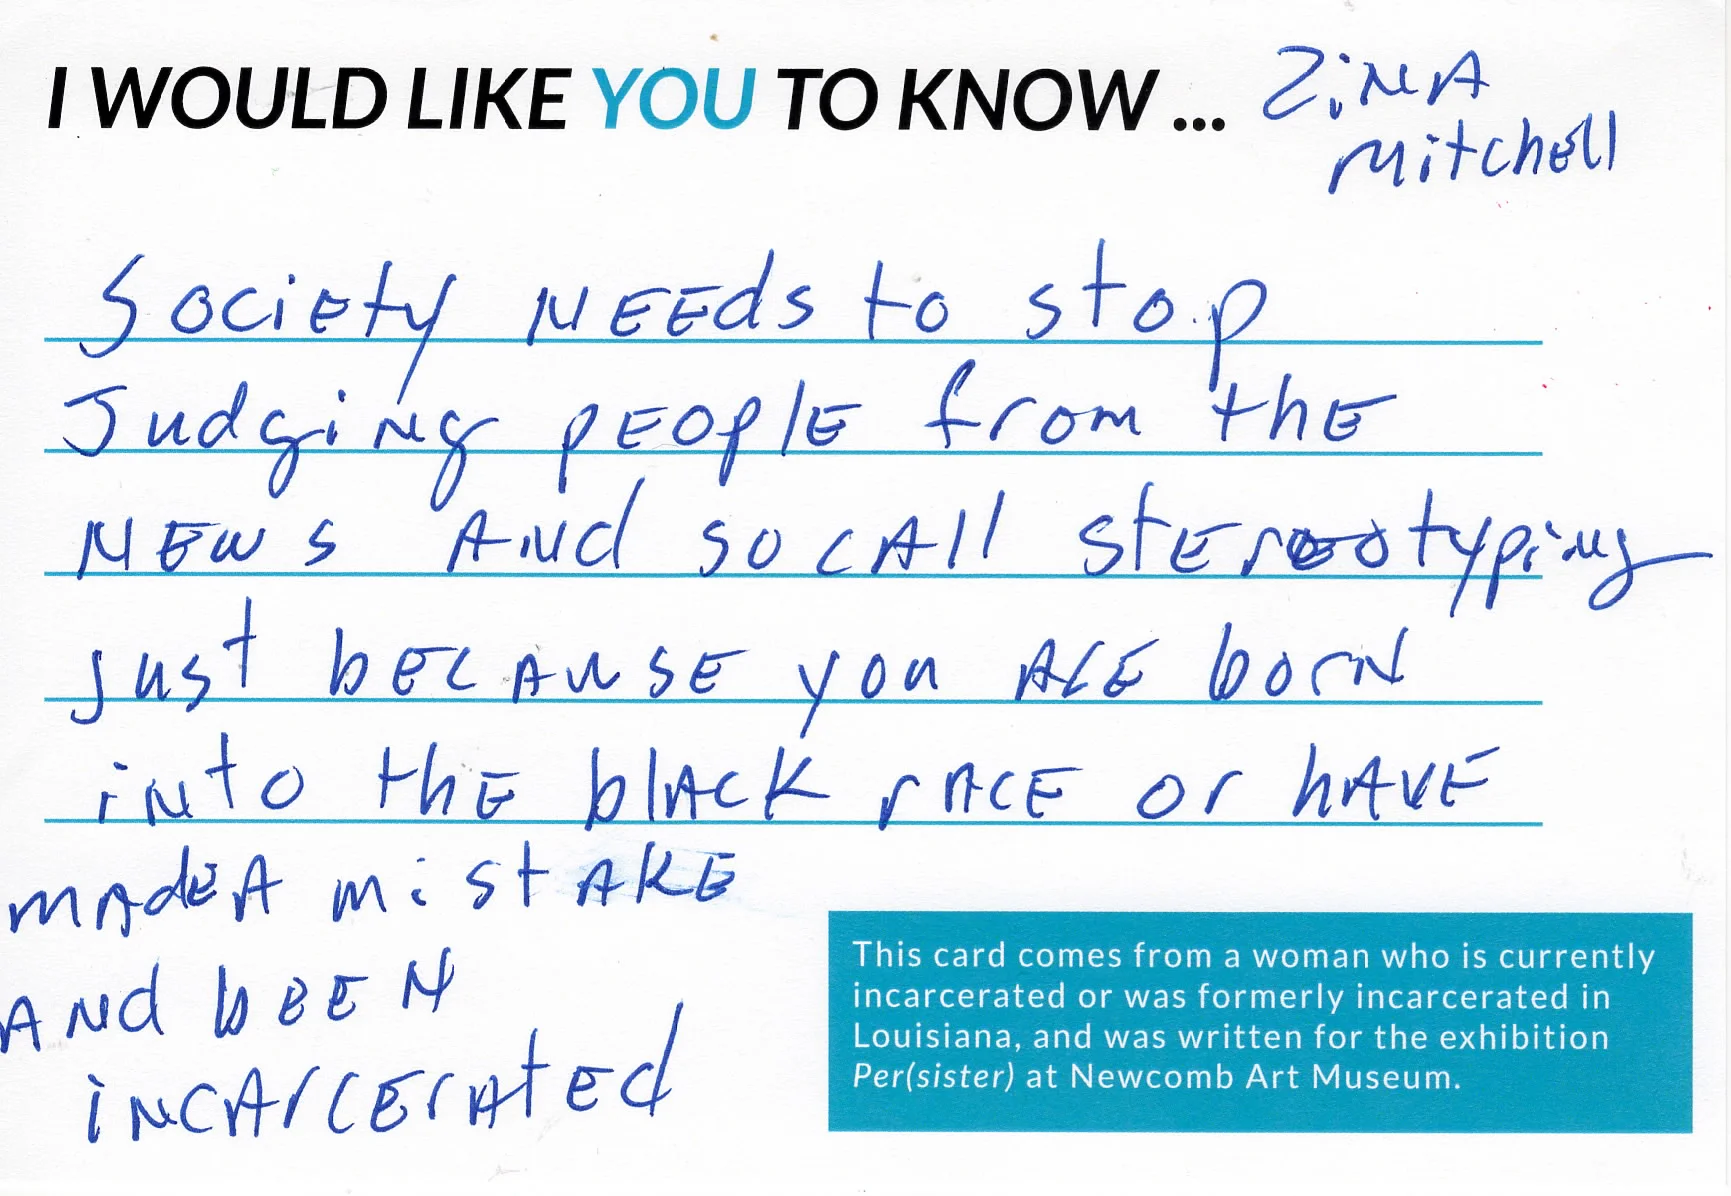 I WOULD LIKE YOU TO KNOW ...
Zina
Mitchell
Society NEEds to stop
Judging pEOplE from thE
NEws ANd so cAll stEreotyping
just bECAusE you ArE borN
iNto thE blAck rACE or hAVE
mAdE A mistAKE
ANd bEEN
iNCArCErAtEd
This card comes from a woman who is currently
incarcerated or was formerly incarcerated in
Louisiana, and was written for the exhibition
Per(sister) at Newcomb Art Museum.